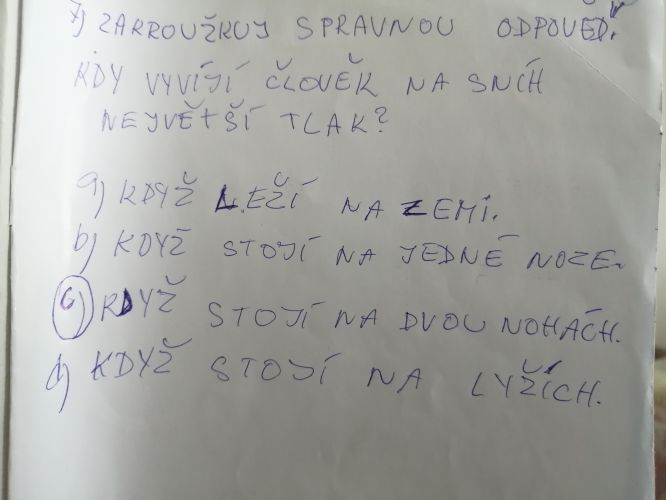 7) ZAKROUŽKUJ SPRAVNOU ODPOVĚĎ.
KDY VYVÍJÍ ČLOVĚK NA SNÍH
NEJVĚTŠÍ TLAK?
a) KDYŽ LEŽÍ NA ZEMI.
b) KDYŽ STOJÍ NA JEDNÉ NOZE.
c) KDYŽ STOJÍ NA DVOU NOHÁCH.
d) KDYŽ STOJÍ NA LYŽÍCH.